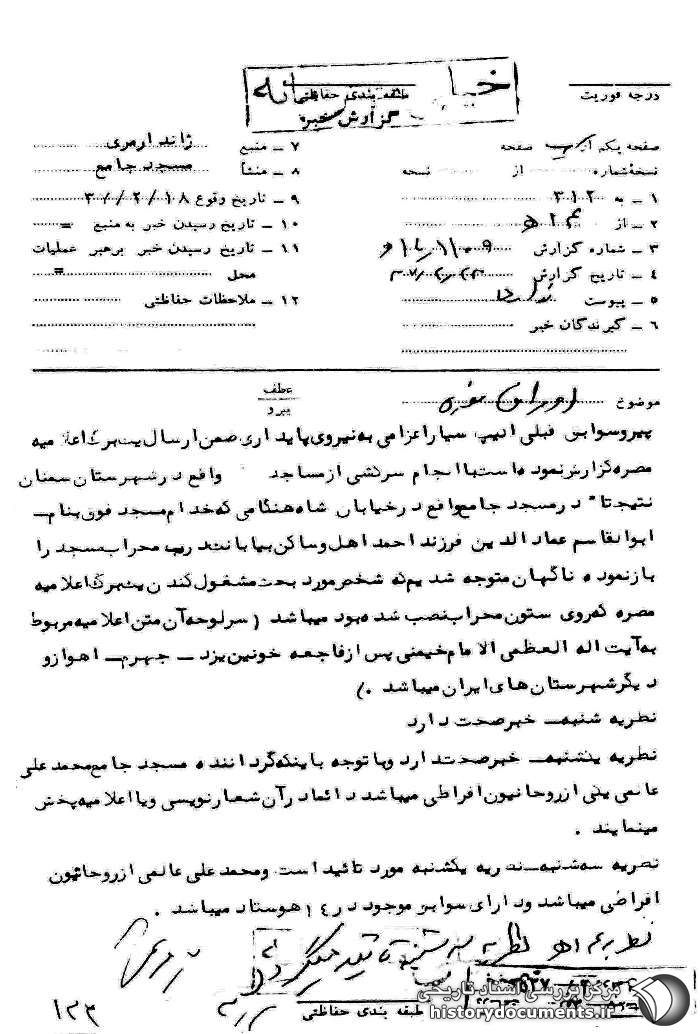 خیلی محرمانه
درجه فوریت
طبقه بندی حفاظتی
گزارش خبر
صفحه یکم از یک صفحه
نسخهٔ شماره از نسخه
۱ ـ به ۳۱۲
۲ ـ از
۳ ـ شماره گزارش
۴ ـ تاریخ گزارش
۵ ـ پیوست ندارد
۶ ـ گیرندگان خبر
۷ ـ منبع ژاندارمری
۸ ـ منشأ مسجد جامع
۹ ـ تاریخ وقوع ۳۷/۲/۱۸
۱۰ ـ تاریخ رسیدن خبر به منبع =
۱۱ ـ تاریخ رسیدن خبر برهبر عملیات
محل =
۱۲ ـ ملاحظات حفاظتی
موضوع اوراق مضره
عطف
پیرو
پیروسوابق قبلی اکیپ سیاراعزامی به نیروی پایداری ضمن ارسال یکبرگ اعلامیه
مضره گزارش نموده است با انجام سرکشی از مساجد واقع در شهرستان سمنان
نتیجتا" در مسجد جامع واقع در خیابان شاه هنگامی که خدام مسجد فوق بنام ـ
ابوالقاسم عماد الدین فرزند احمد اهل وساکن بیابانک درب محراب مسجد را
باز نموده ناگهان متوجه شدیم که شخص مورد بحث مشغول کندن یکبرگ اعلامیه
مضره که روی ستون محراب نصب شده بود میباشد ( سرلوحه آن متن اعلامیه مربوط
به آیت اله العظمی الا مام خمینی پس از فاجعه خونین یزد ـ جهرم ـ اهواز و
دیگر شهرستان های ایران میباشد .)
نظریه شنبه ـ خبر صحت دارد
نظریه یکشنبه ـ خبر صحت دارد وبا توجه باینکه گرداننده مسجد جامع محمد علی
عالمی یکی از روحانیون افراطی میباشد دائما در آن شعارنویسی ویا اعلامیه پخش
مینمایند .
نظریه سه شنبه ـ نظریه یکشنبه مورد تائید است ومحمد علی عالمی از روحانیون
افراطی میباشد ودارای سوابق موجود در ۱۴ هوستاد میباشد .
نظریه سه شنبه تائید میگردد
طبقه بندی حفاظتی
۱۲۳
مرکز بررسی اسناد تاریخی
historydocuments.ir